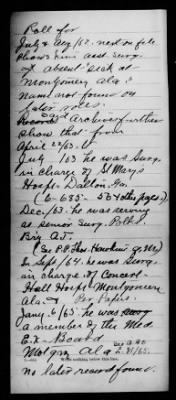 Roll for
July & Aug/62. next on file
Shows him asst surg.
of absent "sick at
Montgomery Ala."
Name not found on
later rolls.
Record Archives further
show that from
April 22/63, to
July /63 he was Surg.
in charge of St Marys
Hospl. Dalton, Ga.
(6-685-
Dec/63. he was serving
as senior surg. Polk's
Brig A.T.
In Sept/64. he was Surg.
in charge of Concert-
Hall Hospl Montgomery
Ala. Per Papers.
Jany. 6/65 he was surg
a member of the Med
Ex- Board
Motgry Ala
no later record found.